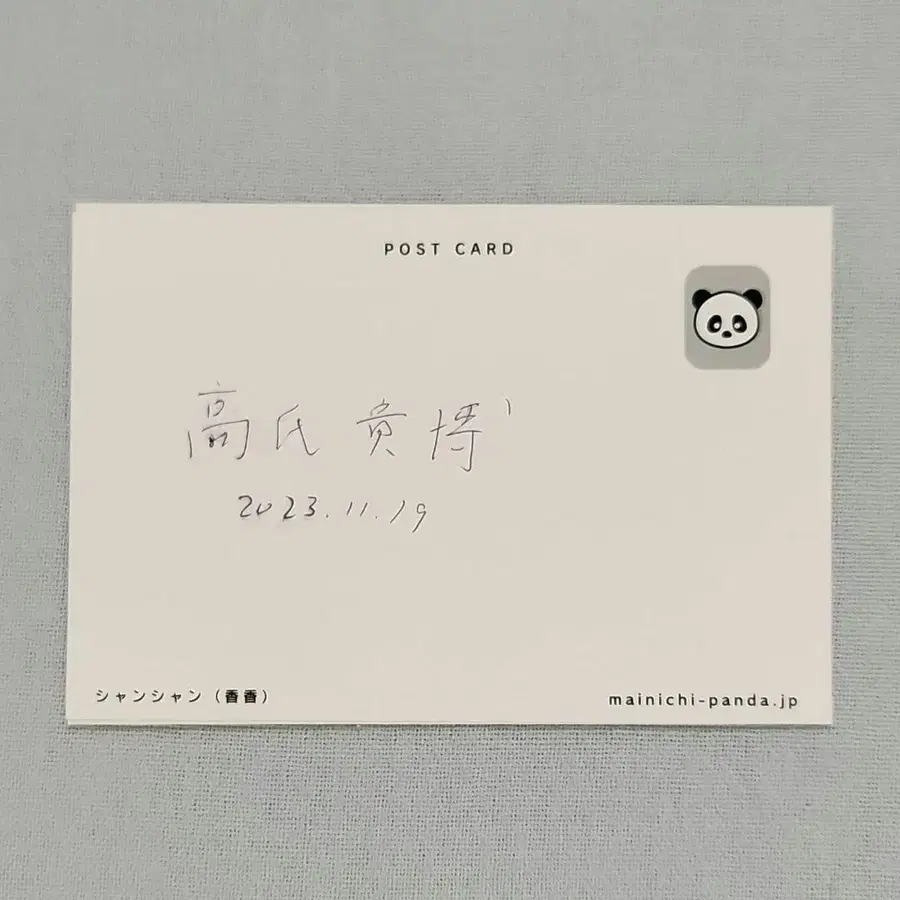 POST CARD
高氏貴博
2023.11.19
シャンシャン（香香）
mainichi-panda.jp